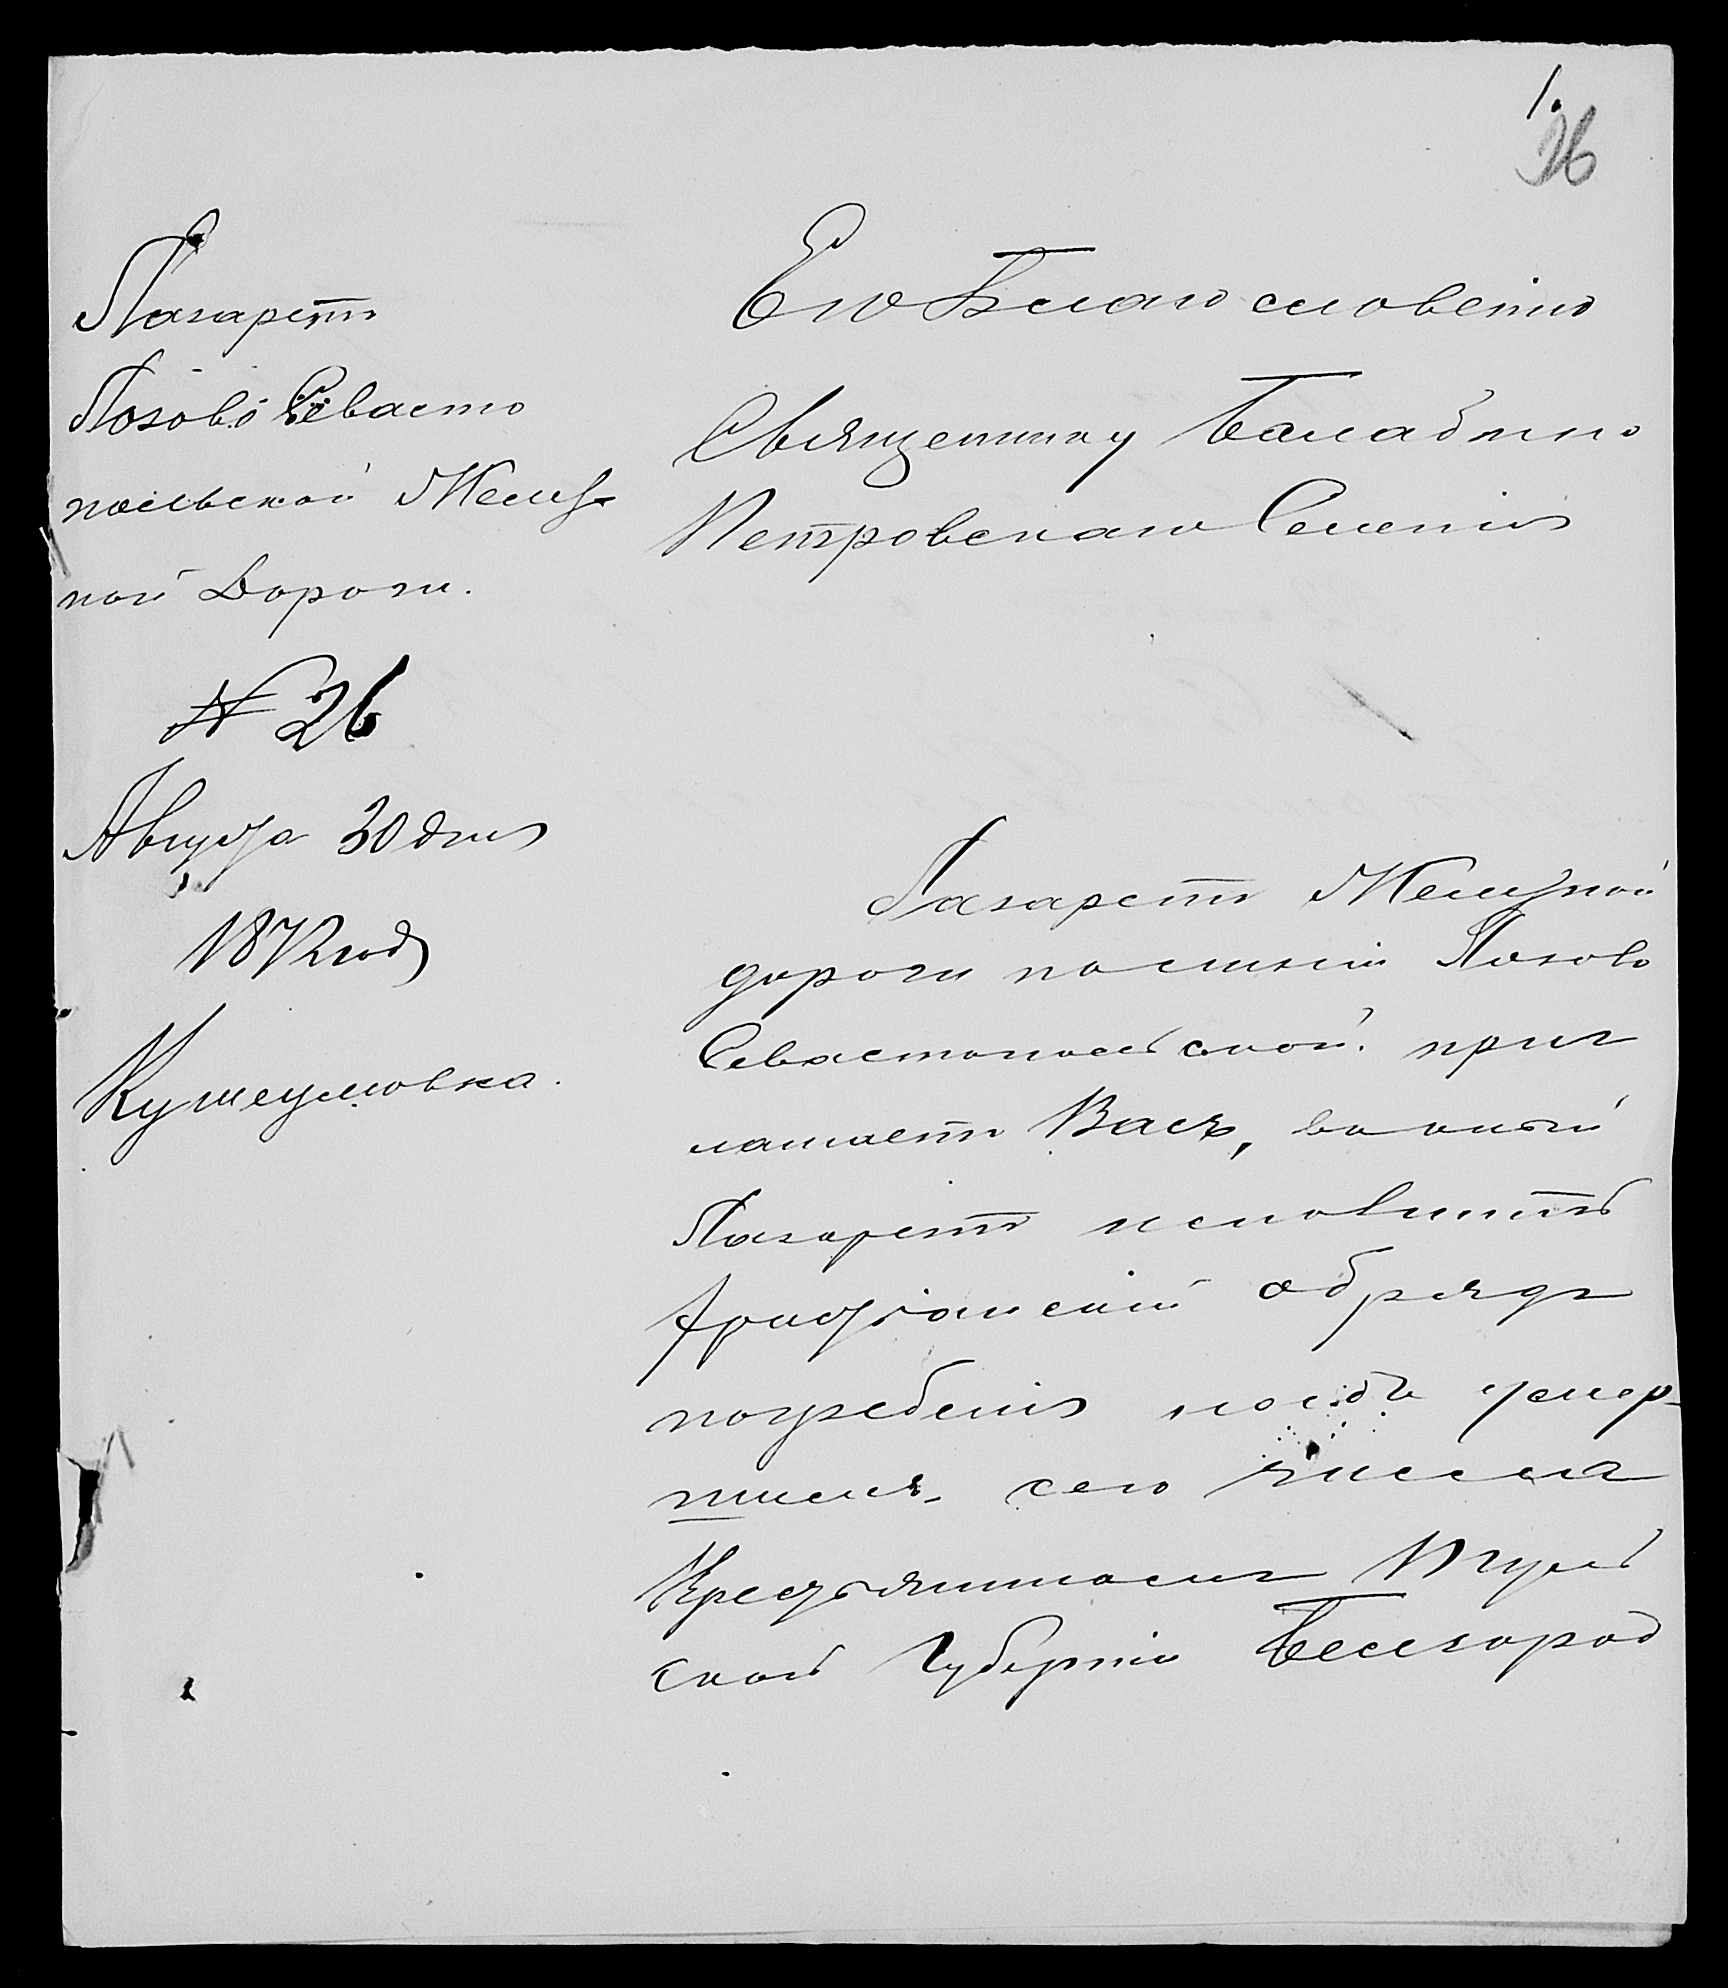 1.
26
Лазаретъ
Лозово Севасто
польской Желѣз
ной Дороги.
№ 26
Августа 30 дня
1872 год
Кушеумовка.
Его Благословенію
Священнику Балабино
Петровскаго Селенія
Лазаретъ Желѣзной
дороги по линіи Лозово
Севастопольской. приг
лашаетъ Васъ, во оный
Лазаретъ исполнить
Христіанскій обрядъ
погребенія надъ умер-
шимъ сего числа
Крестьяниномъ
ской Губерніи Белгород